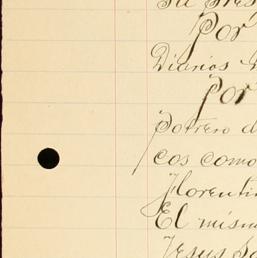 Por
Diarios
Por
potrero d
cos como
Florentin
El mism
Jesus